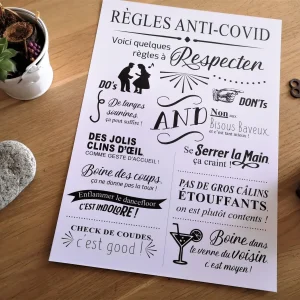 RÈGLES ANTI-COVID
Voici quelques
règles à Respecten
DO'S
DON'TS
De langes
sourines,
ça peut suffire !
AND
Non aux
Bisous Baveux,
DES JOLIS
CLINS D'ŒIL
COMME GESTE D'ACCUEIL !
Se Serrer la Main
ça craint !
Boine des coups,
ça ne donne pas la toux !
Enflammer le dancefloor
C'EST INDOLORE !
PAS DE GROS CÂLINS
ÉTOUFFANTS
on est plutôt contents !
CHECK DE COUDES,
c'est good !
Boine dans
le verre du voisin
c'est moyen !